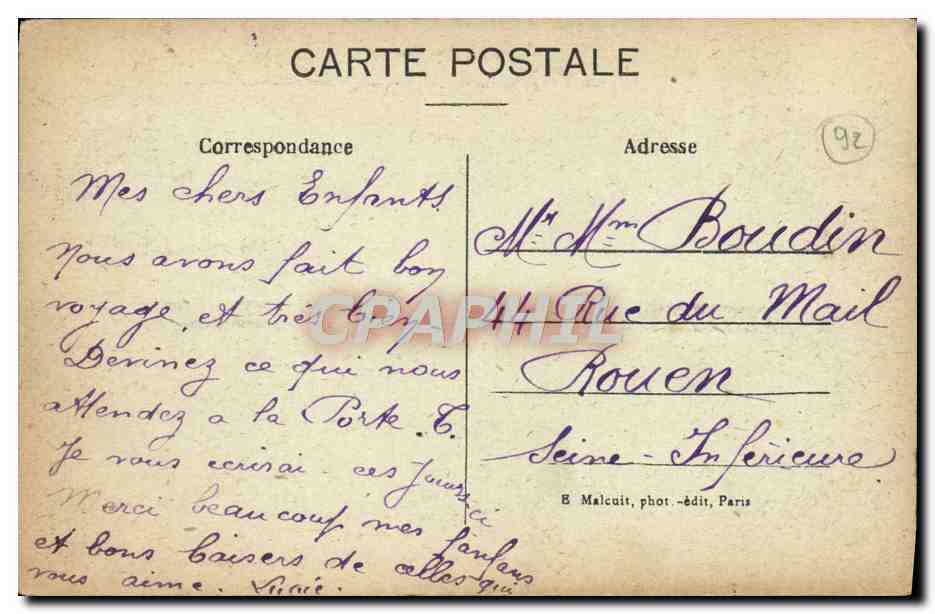 CARTE POSTALE
92
Correspondance
Mes chers Enfants
Nous avons fait bon
voyage, et très bien
Devinez ce qui nous
attendez a la Porte. T.
Je vous ecrirai ces Jours-ci
Merci beaucoup mes fanfans
et bons baisers de celles qui
vous aime.
Adresse
Mr Mm Boudin
44 Rue du Mail
Rouen
Seine-Inférieure
E Malcuit, phot.-édit, Paris
CPAPHIL